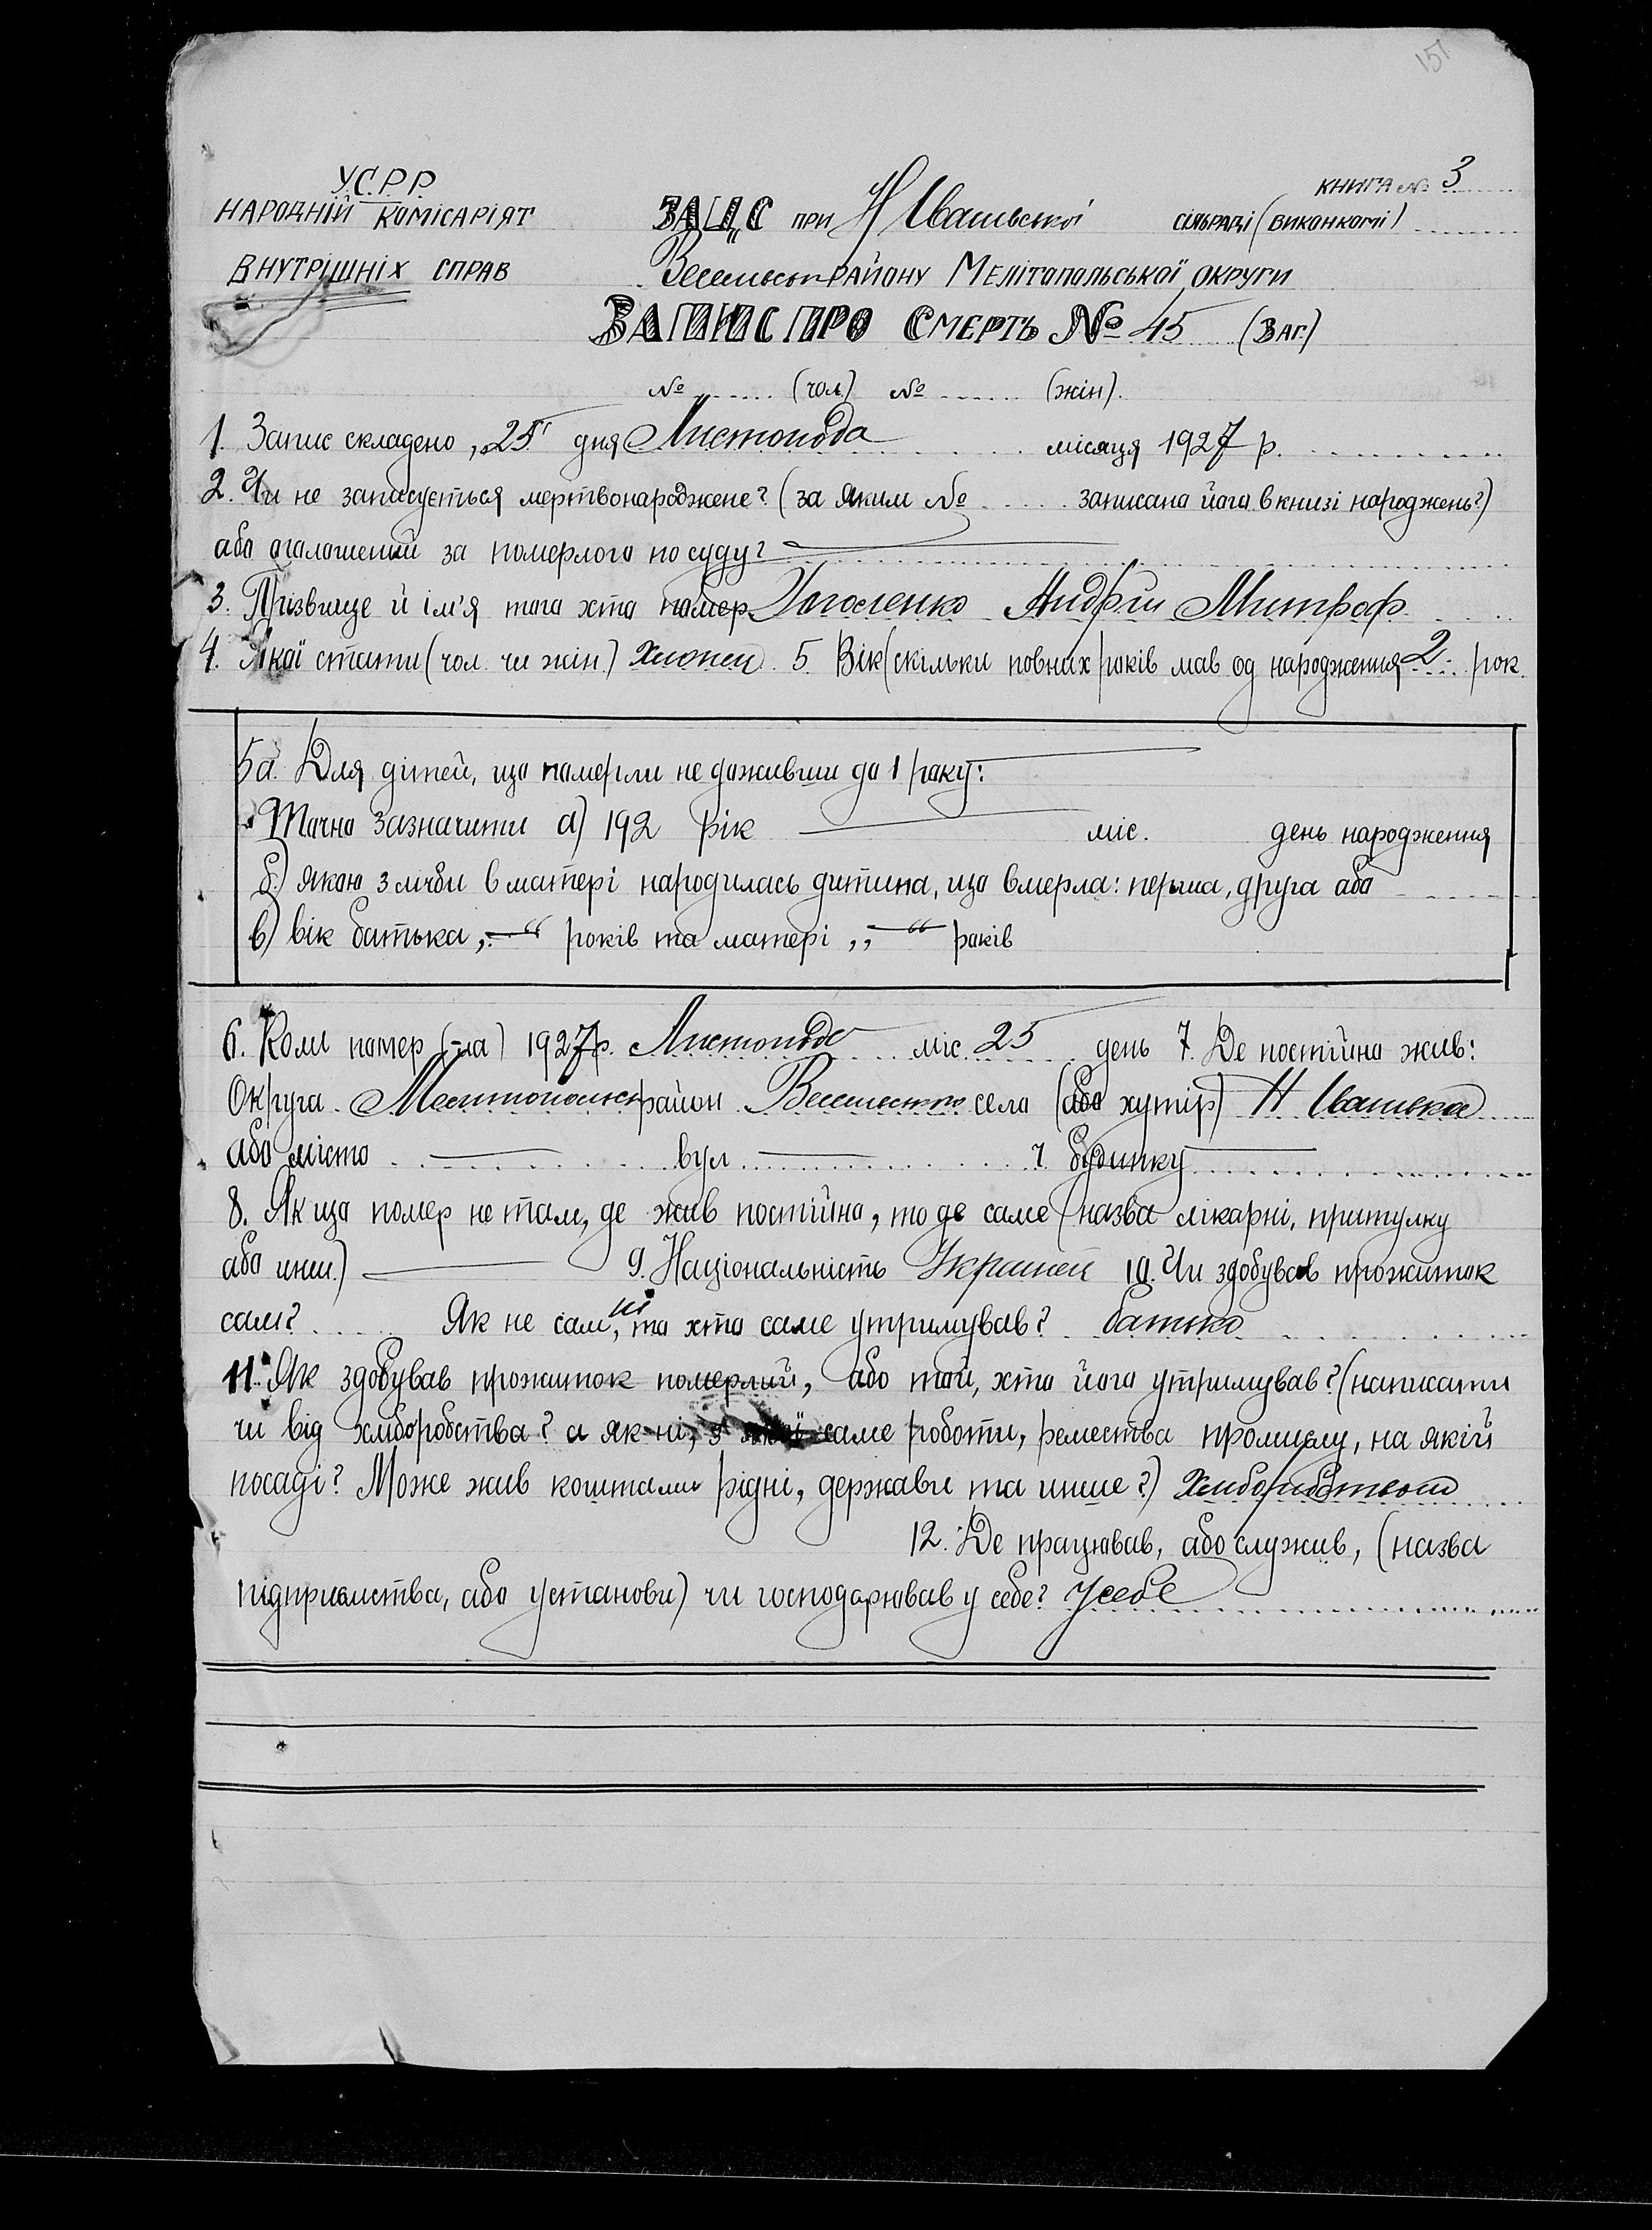 151
У.С.Р.Р.
КНИГА № 3
НАРОДНІЙ КОМІСАРІЯТ
ЗАЦС ПРИ Н Івашьської СІЛЬРАДІ (ВИКОНКОМІ)
ВНУТРІШНІХ СПРАВ
РАЙОНУ МЕЛІТОПОЛЬСЬКОЇ ОКРУГИ
ЗАПИС ПРО СМЕРТЬ № 45 (ЗАГ.)
№ (чол.) № (жін).
1. Запис складено „25" дня Листопода місяця 1927 р.
2. Чи не записується мертвонароджене? (за яким № записана його в книзі народжень?)
або оголошений за померлого по суду?
3. Прізвище й ім'я того хто помер Гоголенко Андрій Митроф.
4. Якої стати (чол. чи жін.) Хлопец 5. Вік (скільки повних років мав од народження 2 рок.
5а. Для дітей, що померли не доживши до 1 року:
Точно зазначити а) 192 рік міс. день народження
б.) якою з лічби в матері народилась дитина, що вмерла: перша, друга або
в) вік батька „—" років та матері „—" років
6. Коли помер (-ла) 1927р. Листопода міс. 25 день 7. Де постійно жив:
Округа Мелитопольск район село (або хутір) Н Івашька
або місто вул. ч. будинку
8. Якщо помер не там, де жив постійно, то де саме (назва лікарні, притулку
або инш.) 9. Національність Украинец 10. Чи здобував прожиток
сам? Як не сам, то хто саме утримував? батько
11. Як здобував прожиток померлий, або той, хто його утримував? (написати
чи від хліборобства? а як ні, з якої саме роботи, ремества промислу, на якій
посаді? Може жив коштами рідні, держави та инше?) Хліборобством
12. Де працював, або служив, (назва
підприємства, або установи) чи господарював у себе? У себе